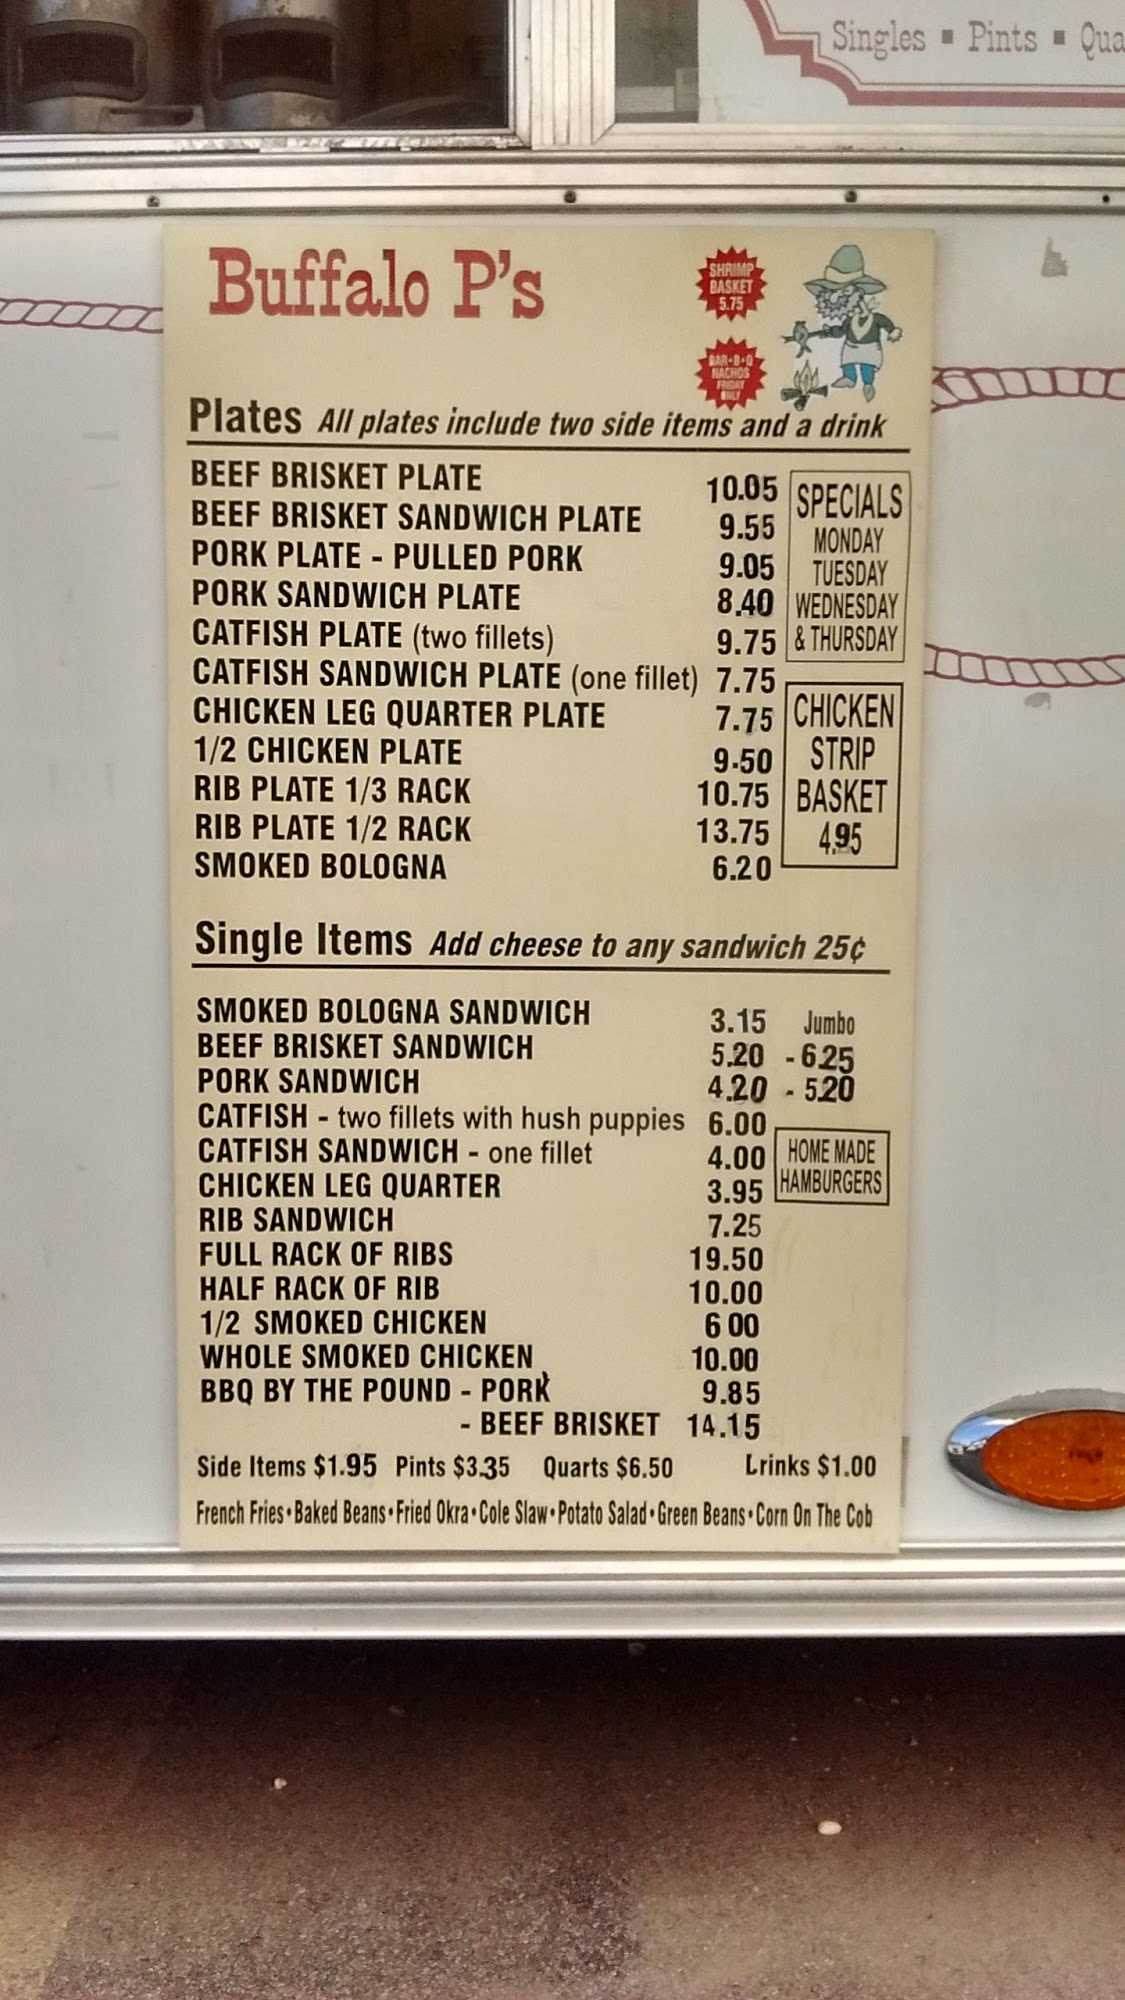 Singles ▪ Pints ▪ Qua
Buffalo P's
SHRIMP
BASKET
5.75
BAR-B-Q
NACHOS
FRIDAY
ONLY
Plates All plates include two side items and a drink
BEEF BRISKET PLATE 10.05
BEEF BRISKET SANDWICH PLATE 9.55
PORK PLATE - PULLED PORK 9.05
PORK SANDWICH PLATE 8.40
CATFISH PLATE (two fillets) 9.75
CATFISH SANDWICH PLATE (one fillet) 7.75
CHICKEN LEG QUARTER PLATE 7.75
1/2 CHICKEN PLATE 9.50
RIB PLATE 1/3 RACK 10.75
RIB PLATE 1/2 RACK 13.75
SMOKED BOLOGNA 6.20
SPECIALS
MONDAY
TUESDAY
WEDNESDAY
& THURSDAY
CHICKEN
STRIP
BASKET
4.95
Single Items Add cheese to any sandwich 25¢
SMOKED BOLOGNA SANDWICH 3.15 Jumbo
BEEF BRISKET SANDWICH 5.20 - 6.25
PORK SANDWICH 4.20 - 5.20
CATFISH - two fillets with hush puppies 6.00
CATFISH SANDWICH - one fillet 4.00
CHICKEN LEG QUARTER 3.95
RIB SANDWICH 7.25
FULL RACK OF RIBS 19.50
HALF RACK OF RIB 10.00
1/2 SMOKED CHICKEN 6 00
WHOLE SMOKED CHICKEN 10.00
BBQ BY THE POUND - PORK 9.85
- BEEF BRISKET 14.15
HOME MADE
HAMBURGERS
Side Items $1.95 Pints $3.35 Quarts $6.50 Drinks $1.00
French Fries • Baked Beans • Fried Okra • Cole Slaw • Potato Salad • Green Beans • Corn On The Cob